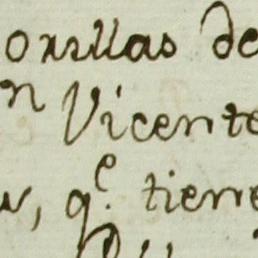 orillas de
n Vicente
, q.e tiene